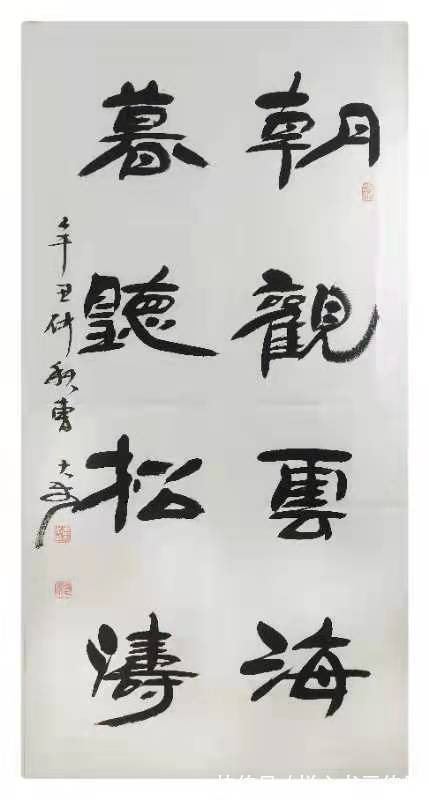 朝觀雲海
暮聽松濤
辛丑仲秋曹大